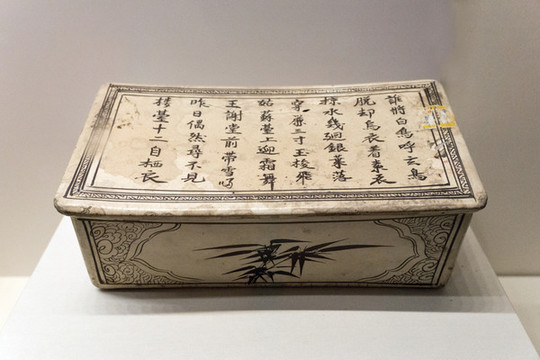 誰將白鳥呼玄鳥
脫却烏衣着素衣
掠水幾迴銀葉落
穿簾三寸玉梭飛
姑蘇臺上迎霜舞
王謝堂前帶雪
昨日偶然尋不見
樓臺十二自栖衣